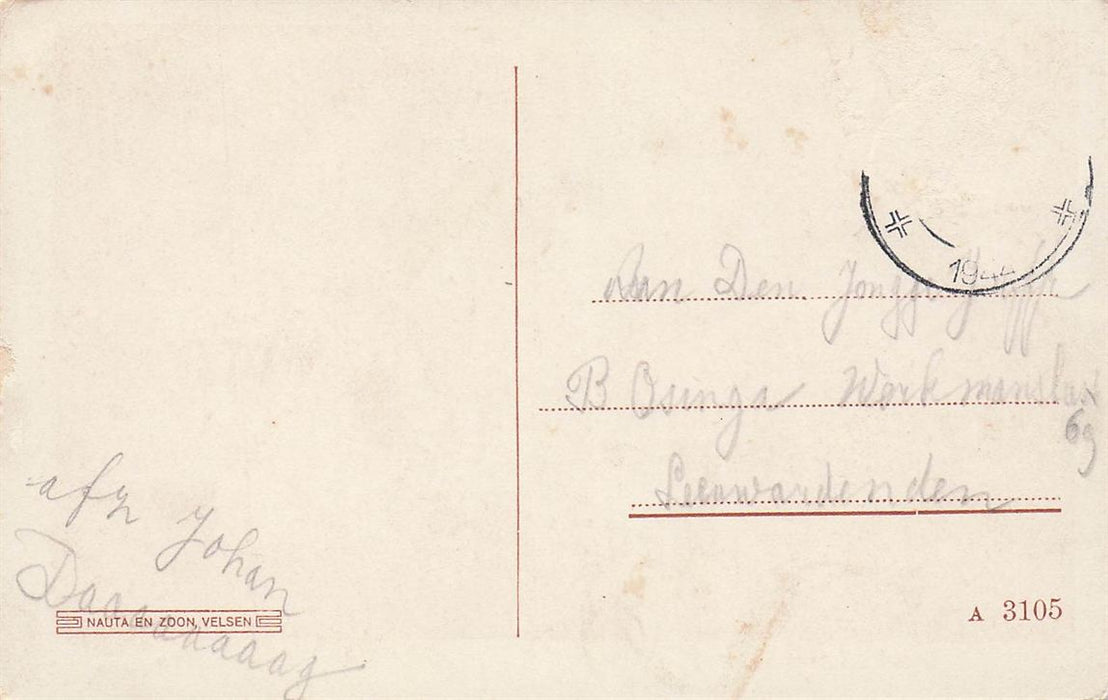 1944
Aan Den Jongge
B Osinga Werkmanslust
69
Leeuwardenden
afz Johan
Daaaaaaaaag
NAUTA EN ZOON, VELSEN
A 3105